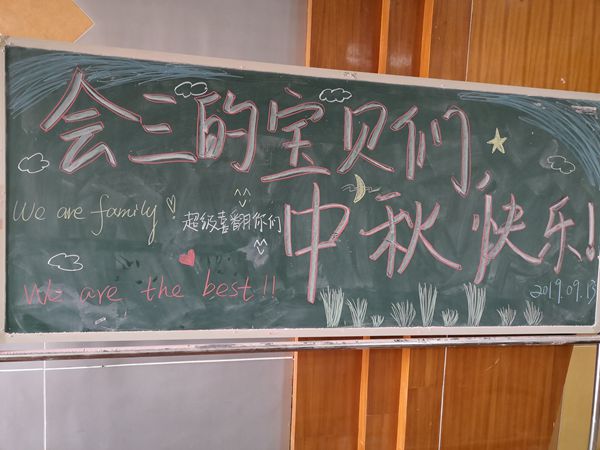 会三的宝贝们,
中秋快乐!
We are family!
超级喜翻你们
We are the best!!
2019.09.13